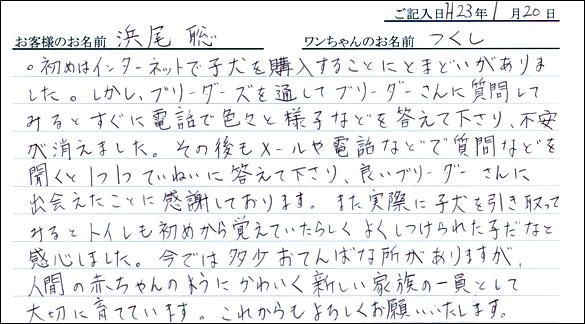 ご記入日H23年1月20日
お客様のお名前 浜尾 聡 ワンちゃんのお名前 つくし
。初めはインターネットで子犬を購入することにとまどいがありま
した。しかし、ブリーダーズを通してブリーダーさんに質問して
みるとすぐに電話で色々と様子などを答えて下さり、不安
が消えました。その後もメールや電話などで質問などを
聞くと1つ1つていねいに答えて下さり、良いブリーダーさんに
出会えたことに感謝しております。また実際に子犬を引き取って
みるとトイレも初めから覚えていたらしくよくしつけられた子だなと
感心しました。今では多少おてんばな所がありますが、
人間の赤ちゃんのようにかわいく新しい家族の一員として
大切に育てています。これからもよろしくお願いいたします。